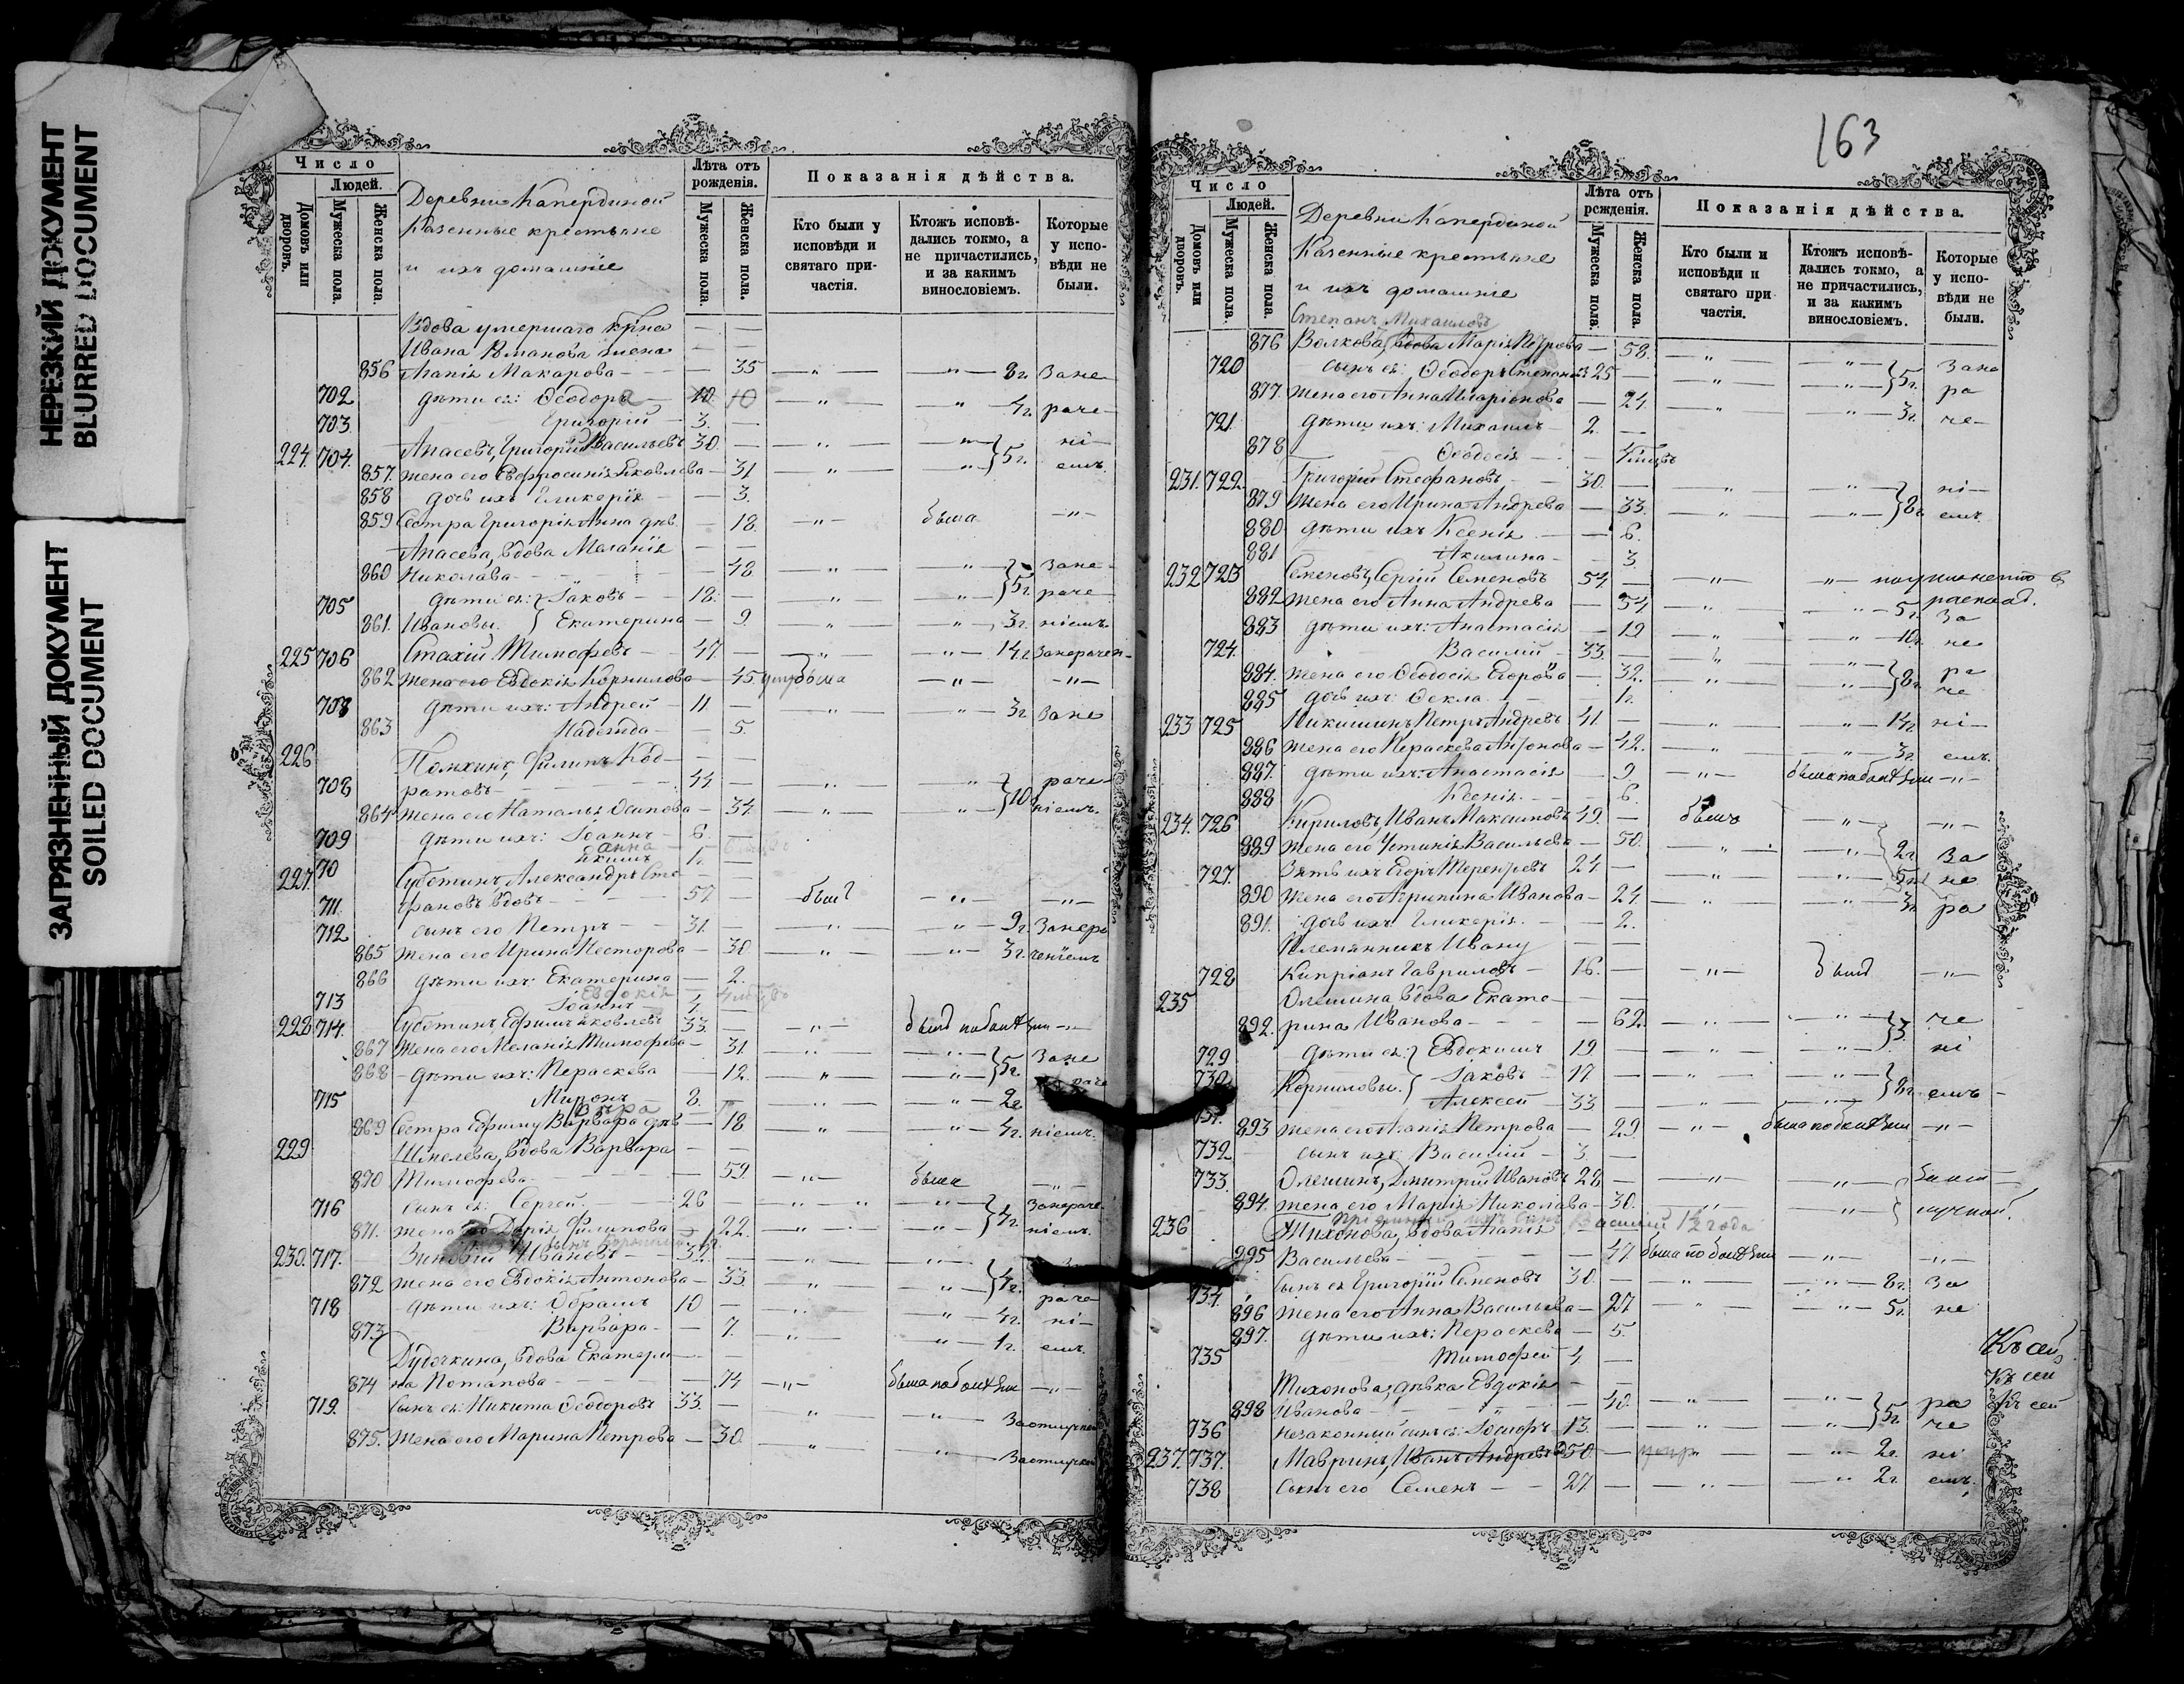 НЕРЕЗКИЙ ДОКУМЕНТ
BLURRED DOCUMENT
ЗАГРЯЗНЕННЫЙ ДОКУМЕНТ
SOILED DOCUMENT
Число
Людей.
Домовъ или дворовъ.
Мужеска пола.
Женска пола.
Деревни Капердиной
Казенные крестьяне
и ихъ домашніе
Лѣта отъ рожденія.
Мужеска пола.
Женска пола.
Показанія дѣйства.
Кто были у исповѣди и святаго причастія.
Ктожъ исповѣдались токмо, а не причастились, и за какимъ винословіемъ.
Которые у исповѣди не были.
Вдова умершаго кр-на
Ивана Романова жена
856 Агапія Макарова — 35 8г. Зане
702 дѣти ея: Ѳеодора 10 4г. раче
703 Григорій — 3.
224. 704. Апасевъ, Григорій Васильевъ 30. ні
857. жена его Евфросинія Яковлева — 31 5г. емъ.
858 дочь ихъ Гликерія — 3.
859 Сестра Григорія Анна дѣв. — 18. была
Апасева, вдова Меланія
860 Николаева — 48 Зане
705 дѣти ея: Іаковъ — 18. 5г. раче
861. Ивановы. Екатерина — 9. 3г. ніемъ
225 706 Стахій Тимофеевъ — 47. 14г. Занерачен
862 жена его Евдокія Корнилова — 45 была
708 дѣти ихъ: Андрей — 11 3г. Зане
863 Надежда — 5.
226 Помхинъ, Филипъ Код
708 ратовъ — 44 раче
864 жена его Наталья Осипова — 34. 10 ніемъ.
709 дѣти ихъ: Іоаннъ — 6.
Анна
70 Якимъ 1.
227. Суботинъ, Александръ Сте
711. фановъ вдовъ — 57 былъ
712. сынъ его Петръ — 31. 9г. Занера
865 жена его Ирина Несторова — 30 3г. ченіемъ
866 дѣти ихъ: Екатерина — 2.
Евдокія
713 Іоаннъ 4
228. 714. Суботинъ Ефимъ Яковлевъ 33. былъ по болѣзни
867 жена его Меланія Тимофеева — 31 Зане
868 дѣти ихъ: Параскева — 12. 5г. раче
715 Миронъ 8. 2г.
Вѣра
869 Сестра Ефиму Варвара дѣв — 18 4г. ніемъ.
229 Шмелева, вдова Варвара
870 Тимофеева — 59. была
716 сынъ ея: Сергей. 26 Занераче
871. жена его Дарія Филипова — 22. 4г. ніемъ.
230. 717. Зиновій Ивановъ — 34.
872 жена его Евдокія Антонова — 33. 4г. раче
718 дѣти ихъ: Абрамъ 10 4г. ні
873 Варвара — 7. 1г. емъ.
Дудочкина, вдова Екатери
874 на Потапова — 74 была по болѣзни
719. Сынъ ея: Никита Ѳеодоровъ 33. Заотлучкой
875. жена его Марина Петрова — 30. Заотлучкой
163
Число
Людей.
Домовъ или дворовъ.
Мужеска пола.
Женска пола.
Деревни Капердиной
Казенные крестьяне
и ихъ домашніе
Лѣта отъ рожденія.
Мужеска пола.
Женска пола.
Показанія дѣйства.
Кто были и исповѣди и святаго при частія.
Ктожъ исповѣдались токмо, а не причастились, и за какимъ винословіемъ.
Которые у исповѣди не были.
Степанъ Михаиловъ
876 Волкова, вдова Марія Петрова — 58. Зане
720 сынъ ея: Ѳеодоръ Степановъ 25 5г. ра
877. жена его Анна Иларіонова — 24. 3г. че
721 дѣти ихъ: Михаилъ 2.
878 Ѳеодосія
231. 722. Григорій Стефановъ 30. ні
879 жена его Ирина Андреева — 33. 8г. емъ.
880 дѣти ихъ Ксенія — 6.
881 Акилина — 3.
232 723 Семеновъ, Сергій Семеновъ 54
882 жена его Анна Андреева — 54 5г. За
883 дѣти ихъ: Анастасія — 19 10г. не
724. Василій — 33. ра
884. жена его Ѳеодосія Егорова — 32. 8г. че
885 дочь ихъ: Ѳекла — 1г.
233 725 Микишинъ Петръ Андреевъ 41. 14г. ні
886 жена его Параскева Антонова — 42. 3г. емъ.
887. дѣти ихъ: Анастасія — 9 была по болѣзни
888 Ксенія. — 6.
234. 726 Кириловъ, Иванъ Максимовъ 49. былъ
889 жена его Устинія Васильева — 50. 2г. За
727. Зять ихъ Егоръ Терентьевъ 24. не
890 жена его Агрипина Иванова — 24. 3г. ра
891. дочь ихъ: Гликерія. — 2.
Племянникъ Ивану
728 Кипріанъ Гавриловъ — 16. былъ
235 Олешина, вдова Екате
892. рина Иванова — 62. че
729 дѣти ея: Евдокимъ 19 3. ні
730 Корниловы. Іаковъ 17
731. Алексей 33 8г. емъ
893 жена его Агапія Петрова — 29. была по болѣзни
732. сынъ ихъ: Василій — 3
733. Олешинъ, Дмитрій Ивановъ 28
894. жена его Марія Николаева — 30. лучкой.
сынъ Василій 1½ года
236 Тихонова, вдова Агапія
895 Васильева — 47. была по болѣзни
734. Сынъ ея Григорій Семеновъ 30. 8г. За
896 жена его Анна Васильева — 27 5г. не
897. дѣти ихъ: Параскева — 5.
735 Тимофей 4
Къ сей
Къ сей
Тихонова, дѣвка Евдокія
898 Иванова — 40. ра Къ сей
736 незаконный сынъ ея: 13. 5г. че
237. 737. Мавринъ, Иванъ Андреевъ 50. 2г. ні
738 сынъ его Семенъ — 27 2г. емъ.